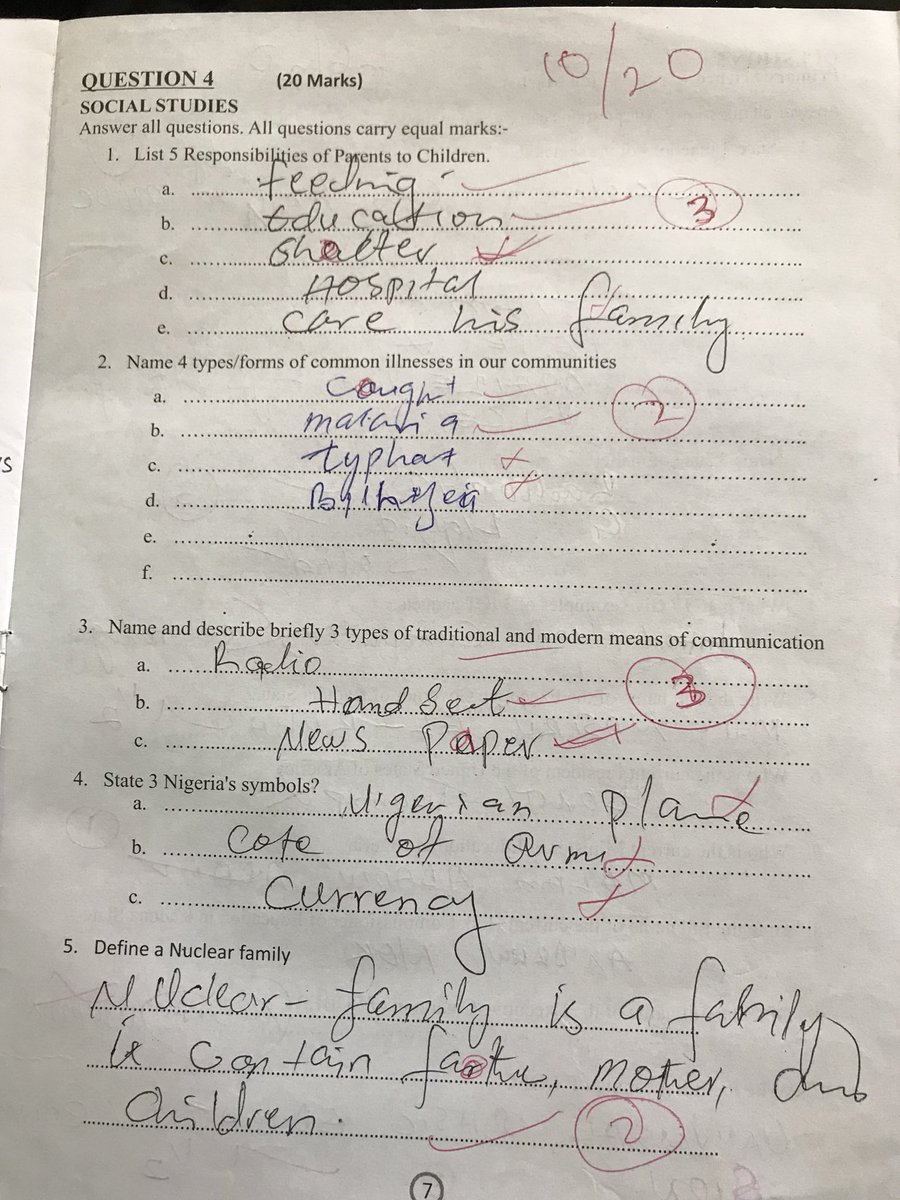 10/20
QUESTION 4 (20 Marks)
SOCIAL STUDIES
Answer all questions. All questions carry equal marks:-
1. List 5 Responsibilities of Parents to Children.
a. feeding
b. Educaltion 3
c. Shelter
d. Hospital
e. care his family
2. Name 4 types/forms of common illnesses in our communities
a. Cought 2
b. malaria
c. typhat
d.
e.
f.
3. Name and describe briefly 3 types of traditional and modern means of communication
a. Radio 3
b. Hand Seet
c. News Paper
4. State 3 Nigeria's symbols?
a. Nigerian
b. Cote of Arms
c. Currency
5. Define a Nuclear family
Nuclear - family is a family
is contain mother, and
children. 2
7